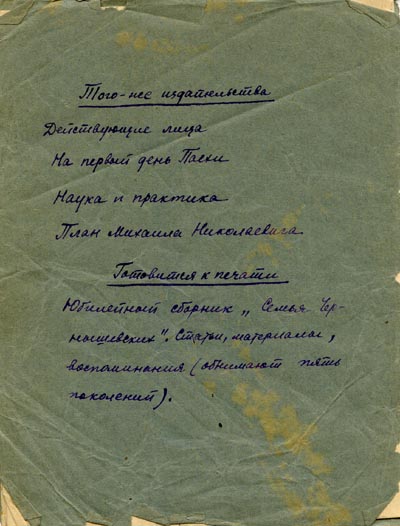 Того-же издательства
Действующие лица
На первый день Пасхи
Наука и практика
План Михаила Николаевича
Готовится к печати
Юбилейный сборник „Семья Чер-
нышевских". Статьи, материалы,
воспоминания (обнимают пять
поколений).